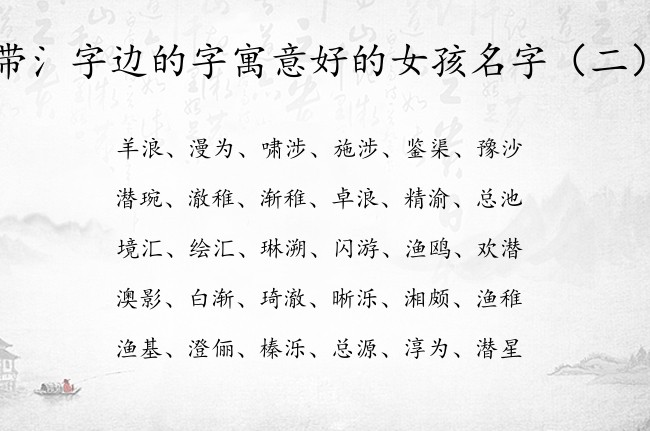 带氵字边的字寓意好的女孩名字（二）
羊浪、漫为、啸涉、施涉、鉴渠、豫沙
潜琬、澈稚、渐稚、卓浪、精渝、总池
境汇、绘汇、琳溯、闪游、渔鸥、欢潜
澳影、白渐、琦澈、晰泺、湘颇、渔稚
渔基、澄俪、榛泺、总源、淳为、潜星